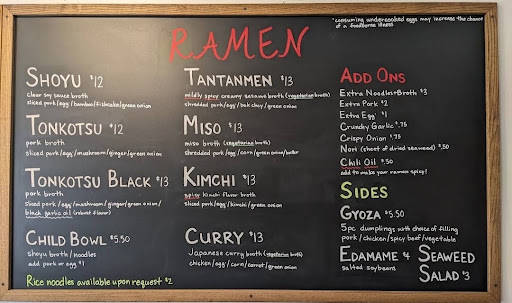 *consuming undercooked eggs may increase the chance
of a foodborne illness
RAMEN
SHOYU $12
clear soy sauce broth
sliced pork/egg/bamboo/fishcake/green onion
TONKOTSU $12
pork broth
sliced pork/egg/mushroom/ginger/green onion
TONKOTSU BLACK $13
pork broth
sliced pork/egg/mushroom/ginger/green onion/
black garlic oil (robust flavor)
CHILD BOWL $5.50
shoyu broth/noodles
add pork or egg $1
Rice noodles available upon request $2
TANTANMEN $13
mildly spicy creamy sesame broth (vegetarian broth)
shredded pork/egg/bok choy/green onion
MISO $13
miso broth (vegetarian broth)
shredded pork/egg/corn/green onion/butter
KIMCHI $13
spicy kimchi flavor broth
sliced pork/egg/kimchi/green onion
CURRY $13
Japanese curry broth (vegetarian broth)
chicken/egg/corn/carrot/green onion
ADD ONS
Extra Noodles+Broth $3
Extra Pork $2
Extra Egg $1
Crunchy Garlic $.75
Crispy Onion $.75
Nori (sheet of dried seaweed) $.50
Chili Oil $.50
add to make your ramen spicy!
SIDES
GYOZA $5.50
5pc dumplings with choice of filling
pork/chicken/spicy beef/vegetable
EDAMAME &
salted soybeans
SEAWEED
SALAD $3